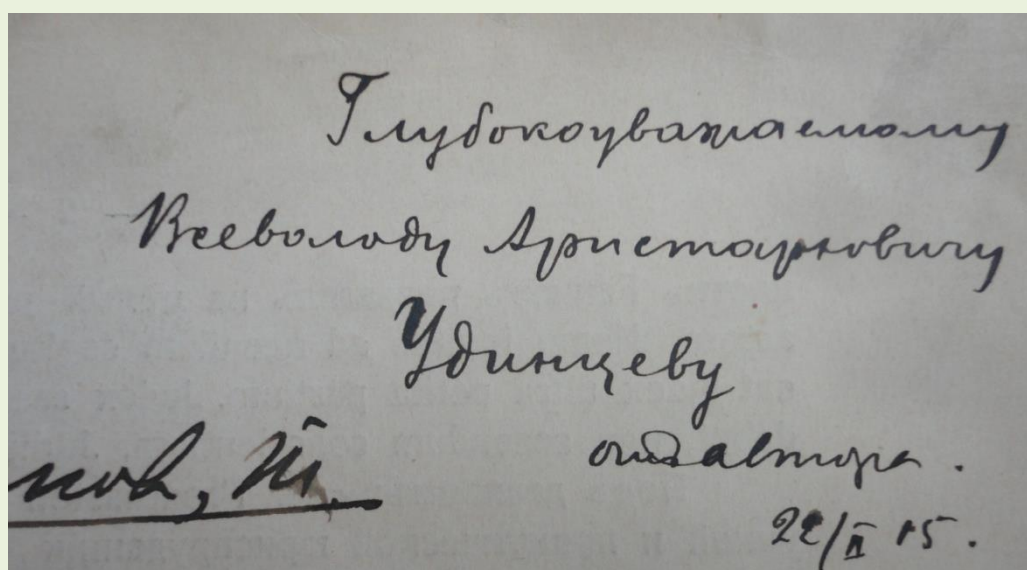 Глубокоуважаемому
Всеволоду Аристарховичу
Удинцеву
отъ автора.
22/II 15.